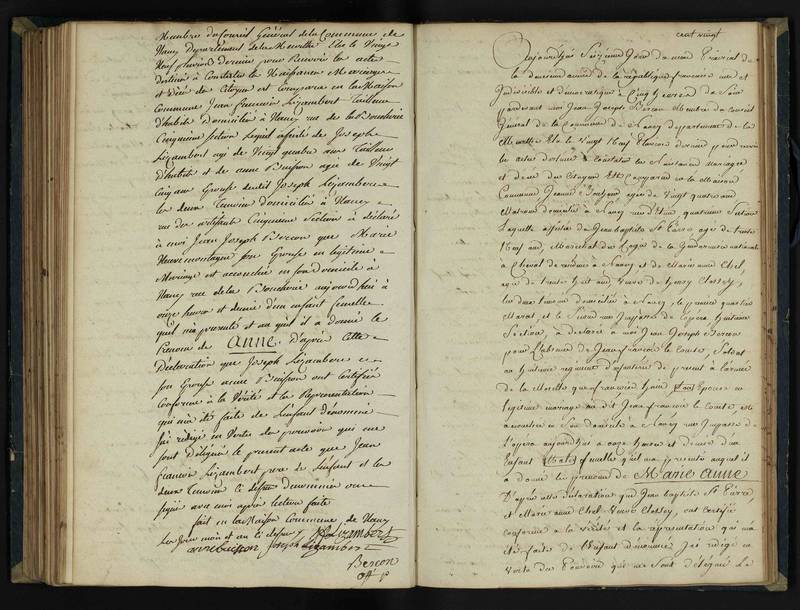 Membre du Conseil Général de la Commune de
Nancy Département de la Meurthe Elu le Vingt
Neuf pluviose dernier pour Recevoir les actes
destinés à Constater les Naissances Mariages
et Décès des Citoyens est Comparu en la Maison
Commune Jean francois Lizambert Tailleur
d'habits Domicilié à Nancy rue de la Boucherie
Cinquieme Section Lequel assisté de Joseph
Lizambert agé de Vingt quatre ans Tailleur
d'habits et de anne Buisson agée de Vingt
Cinq ans Epouse dudit Joseph Lizambert
les deux Temoins domiciliés à Nancy
rue des artisans Cinquieme Section à déclaré
à moi Jean Joseph Bercon que Marie
son Epouse en legitime
Mariage est accouchée en son domicile à
Nancy rue de la Boucherie aujourd'hui à
onze heures et demie d'un enfant femelle
qu'il m'a presenté et auquel il a donné le
Prenom de anne D'après cette
Déclaration que Joseph Lizambert et
son Epouse anne Buisson ont Certifiée
Conforme à la Verité et la Representation
qui m'a été faite de L'enfant denommé
J'ai rédigé en Vertu des pouvoirs qui me
sont Délégués le présent acte que Jean
francois Lizambert pere de L'enfant et les
deux Temoins ci dessus denommés ont
signé avec moi après lecture faite
fait en la Maison Commune de Nancy
les jour mois et an ci dessus Lizambert
anne buisson Joseph Lizambert
Bercon
off. p.
cent vingt
Aujourd'hui Seizieme Jour du mois Prairial de
la deuxieme année de la republique francaise une et
Indivisible et democratique à Cinq heures du Soir
pardevant moi Jean Joseph Bercon Membre du Conseil
Général de la Commune de Nancy departement de la
Meurthe Elu le Vingt Neuf Pluviose dernier pour recevoir
les actes destinés à Constater les Naissances Mariages
et deces des Citoyens Est Comparue en la Maison
Commune Jeanne agée de Vingt quatre ans
Matrone domiciliée à Nancy rue quatrieme Section
Laquelle assistée de Jean baptiste St Pierre agé de trente
Neuf ans, Marechal des Logis de la Gendarmerie nationale
à Cheval de residence à Nancy et de Marie anne Chel,
agée de trente huit ans Veuve de Classey,
les deux temoins domiciliés à Nancy le premier quartier
Marat, et le Second rue Impasse de l'opera, huitieme
Section, à déclaré à moi Jean Joseph Bercon
pour L'absence de Jean francois le Comte, Soldat
au huitieme regiment d'infanterie de present à l'armée
de la Moselle que francoise Epouse en
legitime mariage au dit Jean francois le Comte, est
accouchée en Son domicile à Nancy rue Impasse de
l'opera aujourd'hui à onze heures et demie d'un
Enfant femelle qu'il m'a presenté auquel il
a donné le prenom de Marie Anne
D'après cette déclaration que Jean baptiste St Pierre,
et Marie anne Chel Veuve Classey, ont certifié
conforme à la vérité et la representation qui m'a
été faite de l'Enfant denommé J'ai redigé en
vertu des Pouvoirs qui me sont délégués Le